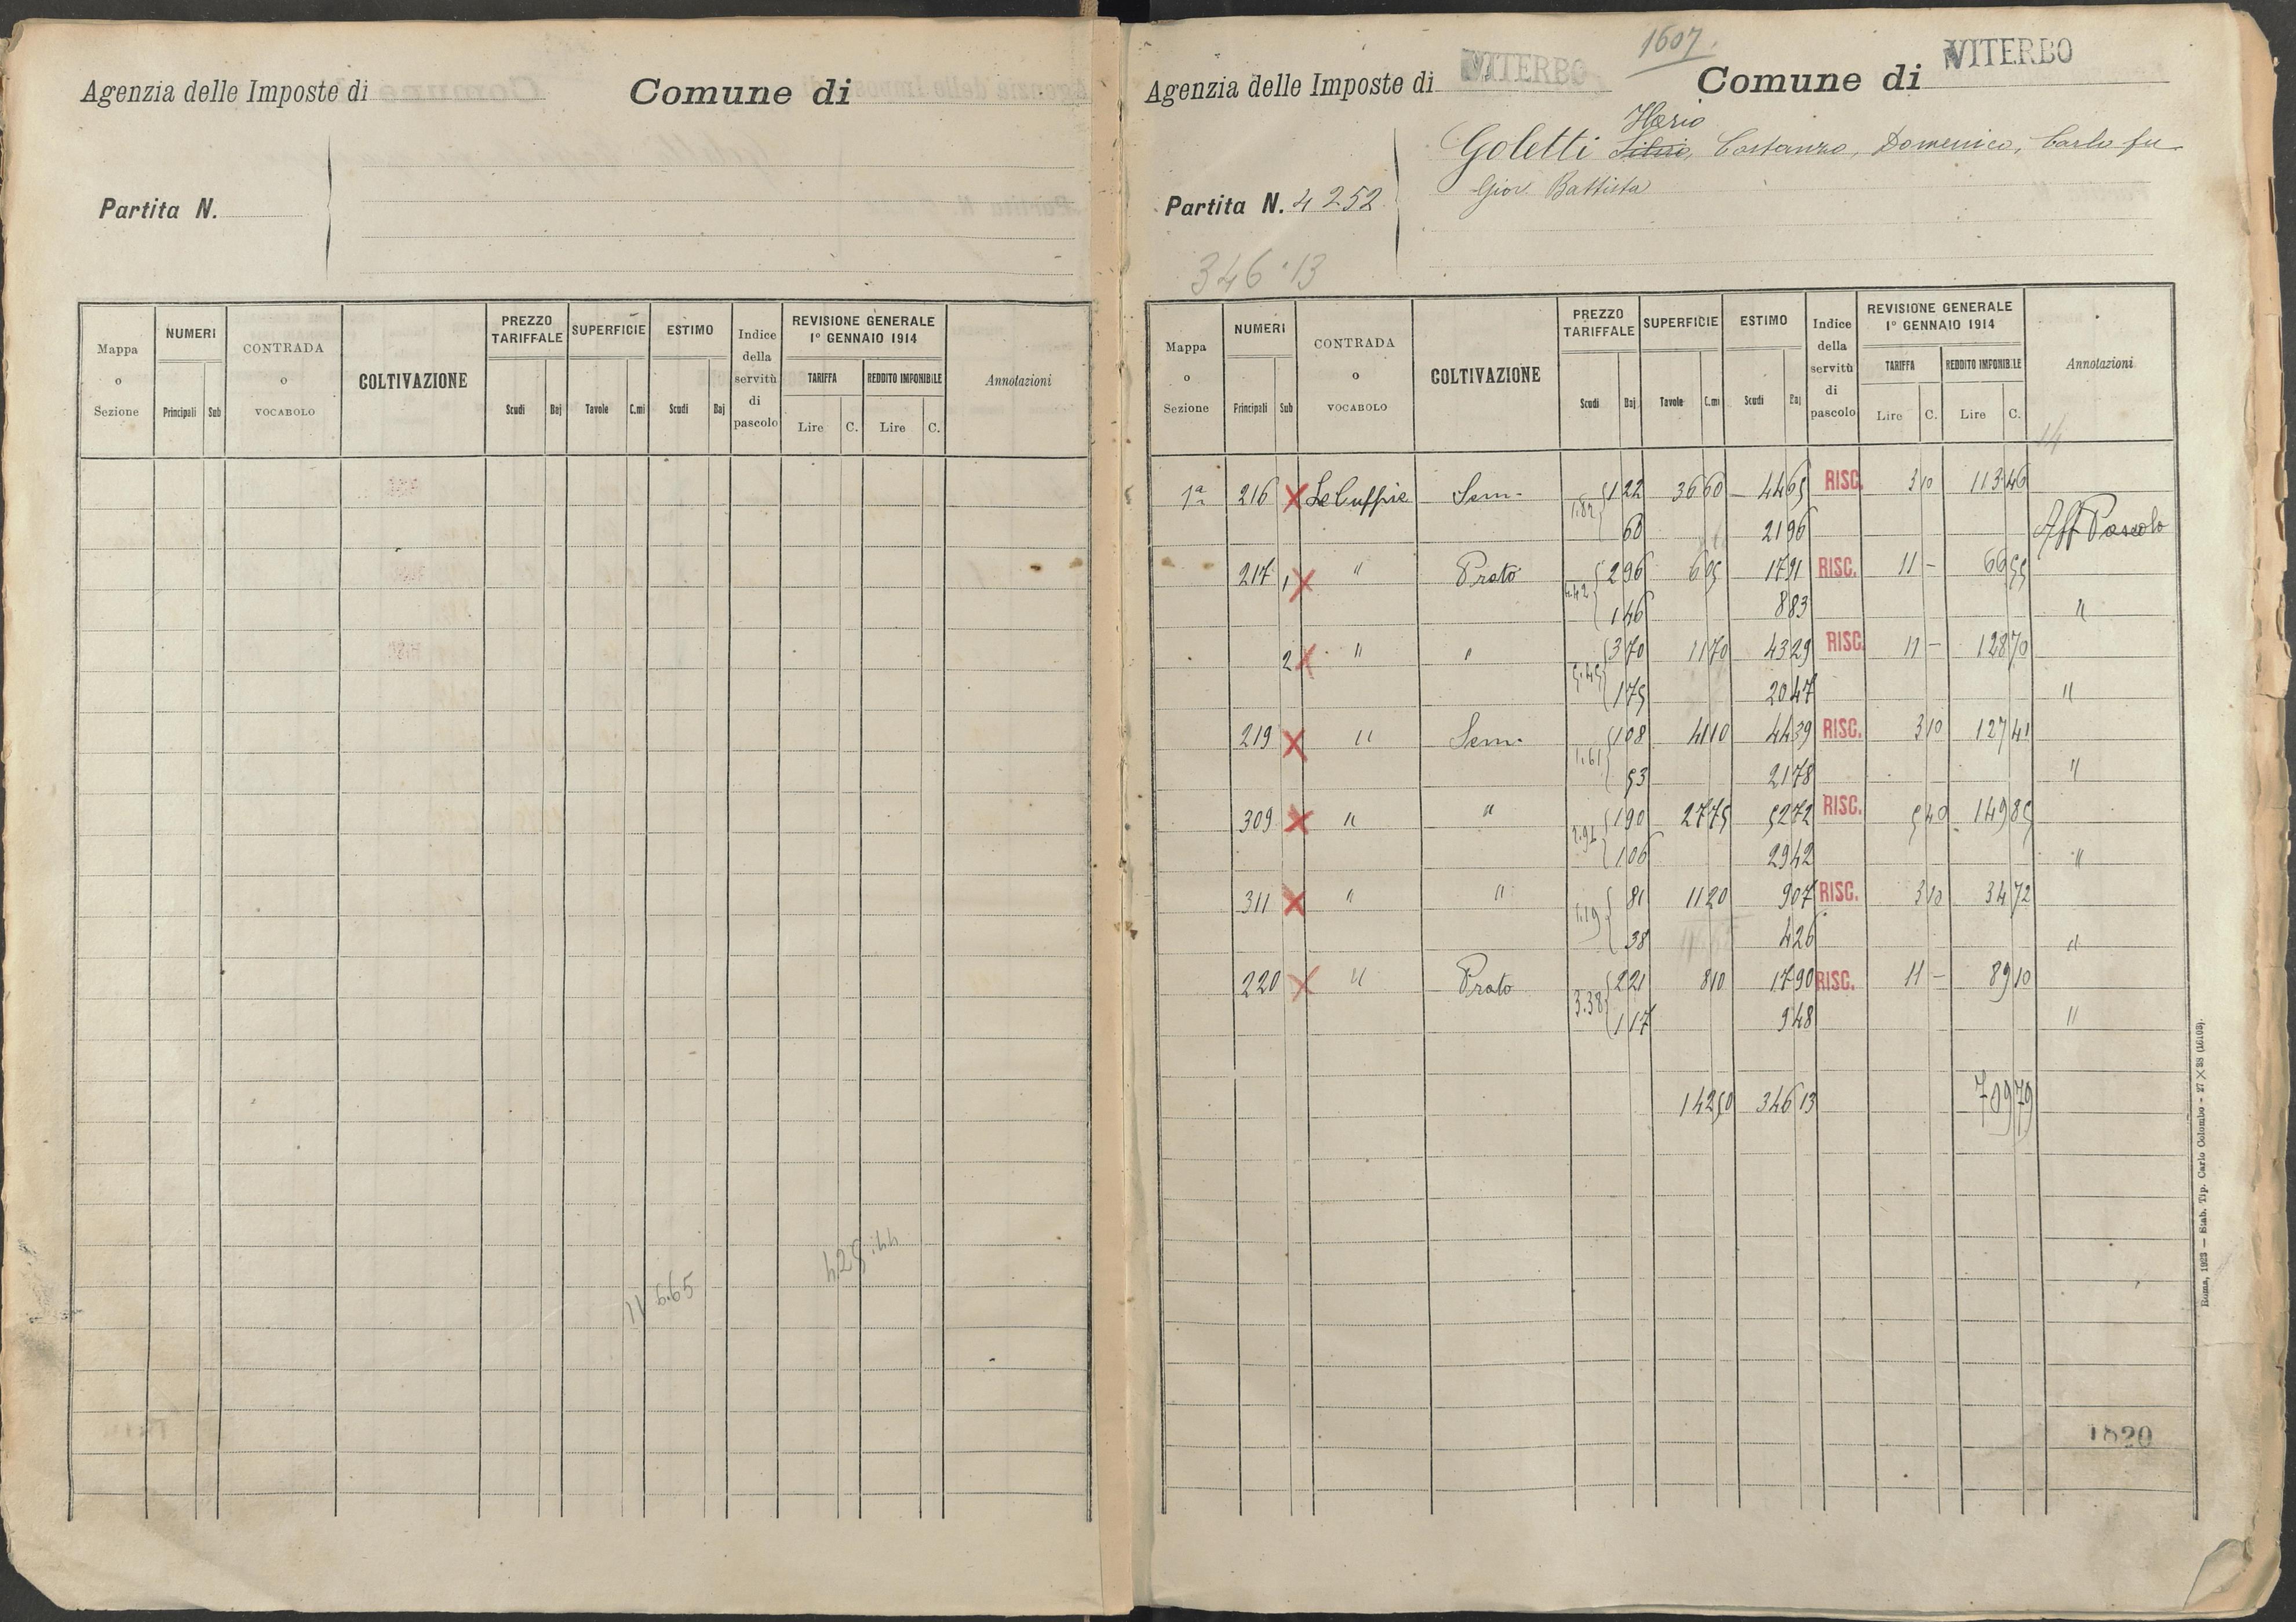 Agenzia delle Imposte di
Comune di
Partita N.
Mappa o Sezione
NUMERI
Principali Sub
CONTRADA o VOCABOLO
COLTIVAZIONE
PREZZO TARIFFALE
Scudi Baj
SUPERFICIE
Tavole C.mi
ESTIMO
Scudi Baj
Indice della servitù di pascolo
REVISIONE GENERALE 1° GENNAIO 1914
TARIFFA
Lire C.
REDDITO IMPONIBILE
Lire C.
Annotazioni
11 6.65
1607.
Agenzia delle Imposte di VITERBO
Comune di VITERBO
Partita N. 4252
Ilario
Goletti Silvio, Costanzo, Domenico, Carlo fu
Giov. Battista
346.13
Mappa o Sezione
NUMERI
Principali Sub
CONTRADA o VOCABOLO
COLTIVAZIONE
PREZZO TARIFFALE
Scudi Baj
SUPERFICIE
Tavole C.mi
ESTIMO
Scudi Baj
Indice della servitù di pascolo
REVISIONE GENERALE 1° GENNAIO 1914
TARIFFA
Lire C.
REDDITO IMPONIBILE
Lire C.
Annotazioni
14
1ª 216 X Le Cuffie Sem. 1.82 1 22 36 60 44 65 RISC. 3 10 113 46
60 21 96 Aff Pascolo
217 1 X " Prato 4.42 2 96 6 05 17 91 RISC. 11 - 66 55
1 46 8 83 "
2 X " " 5.45 3 70 11 70 43 29 RISC. 11 - 128 70
1 75 20 47 "
219 X " Sem. 1.61 1 08 41 10 44 39 RISC. 3 10 127 41
53 21 78 "
309 X " " 2.96 1 90 27 75 52 72 RISC. 5 40 149 85
1 06 29 42 "
311 X " " 1.19 81 11 20 9 07 RISC. 3 10 34 72
38 4 26 "
220 X " Prato 3.38 2 21 8 10 17 90 RISC. 11 - 89 10
1 17 9 48 "
142 50 346 13 709 79
1820
Roma, 1923 — Stab. Tip. Carlo Colombo - 27 X 38 (16103).